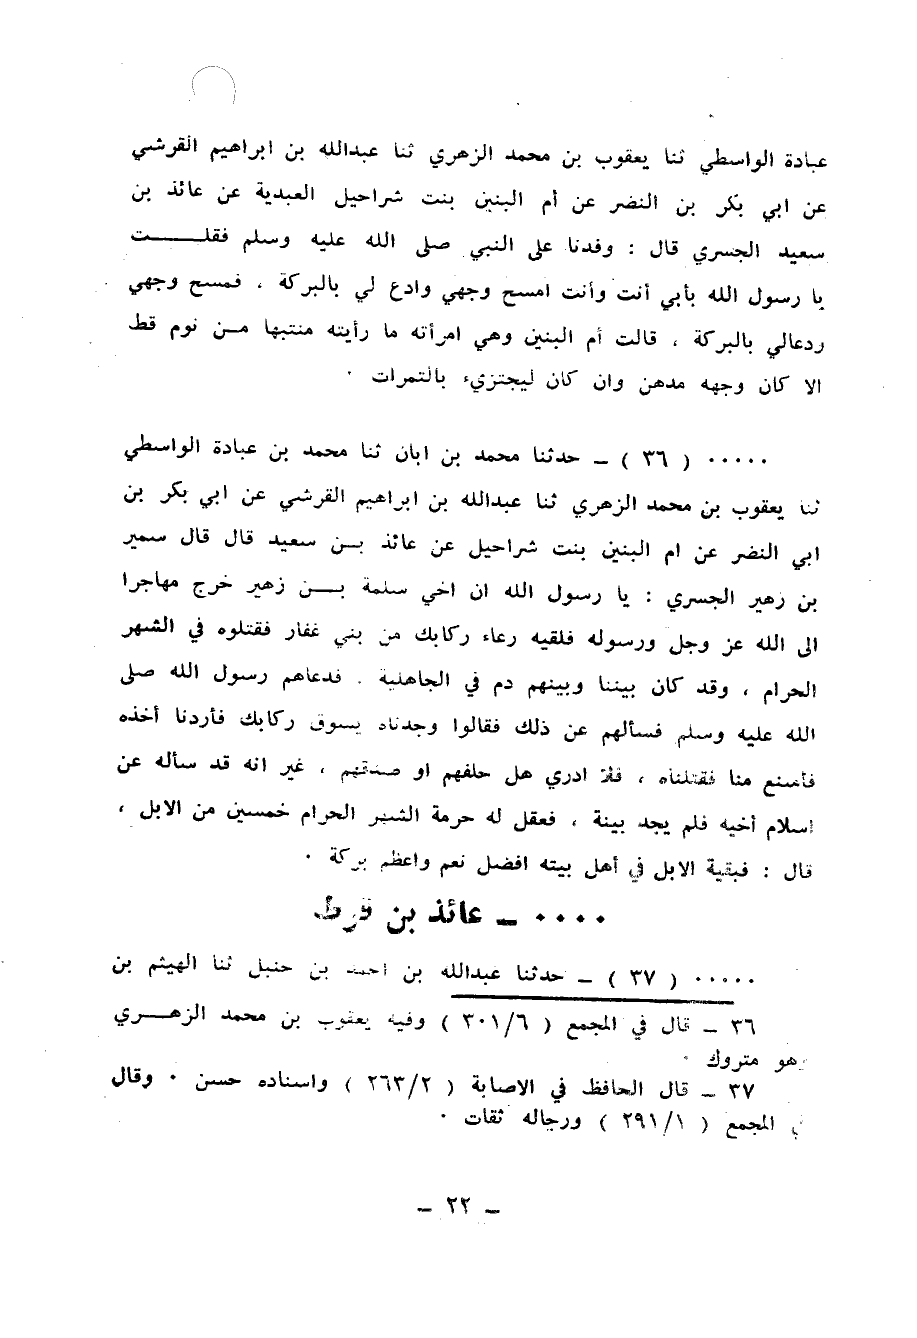 عبادة الواسطي ثنا يعقوب بن محمد الزهري ثنا عبدالله بن ابراهيم القرشي
عن ابي بكر بن النضر عن أم البنين بنت شراحيل العبدية عن عائذ بن
سعيد الجسري قال : وفدنا على النبي صلى الله عليه وسلم فقلــــــت
يا رسول الله بأبي أنت وأنت امسح وجهي وادع لي بالبركة ، فمسح وجهي
ردعالي بالبركة ، قالت أم البنين وهي امرأته ما رأيته منتبها مــن نوم قط
الا كان وجهه مدهن وان كان ليجتزيء بالتمرات ·
····· ( ٣٦ ) ــ حدثنا محمد بن ابان ثنا محمد بن عبادة الواسطي
ثنا يعقوب بن محمد الزهري ثنا عبدالله بن ابراهيم القرشي عن ابي بكر بن
ابي النضر عن ام البنين بنت شراحيل عن عائذ بــن سعيد قال قال سمير
بن زهير الجسري : يا رسول الله ان اخي سلمة بــــن زهير خرج مهاجرا
الى الله عز وجل ورسوله فلقيه رعاء ركابك من بني غفار فقتلوه في الشهر
الحرام ، وقد كان بيننا وبينهم دم في الجاهلية . فدعاهم رسول الله صلى
الله عليه وسلم فسألهم عن ذلك فقالوا وجدناه يسوق ركابك فأردنا أخذه
فأمتنع منا فقتلناه ، فلا ادري هل حلفهم او صدقهم ، غير انه قد سأله عن
اسلام أخيه فلم يجد بينة ، فعقل له حرمة الشهر الحرام خمسين من الابل ،
قال : فبقية الابل في أهل بيته افضل نعم واعظم بركة ·
···· ــ عائذ بن قرط
····· ( ٣٧ ) ــ حدثنا عبدالله بن احمد بن حنبل ثنا الهيثم بن
٣٦ ــ قال في المجمع ( ٣٠١/٦ ) وفيه يعقوب بن محمد الزهــــري
وهو متروك ·
٣٧ ــ قال الحافظ في الاصابة ( ٢٦٣/٢ ) واسناده حسن · وقال
في المجمع ( ٢٩١/١ ) ورجاله ثقات ·
ــ ٢٢ ــ